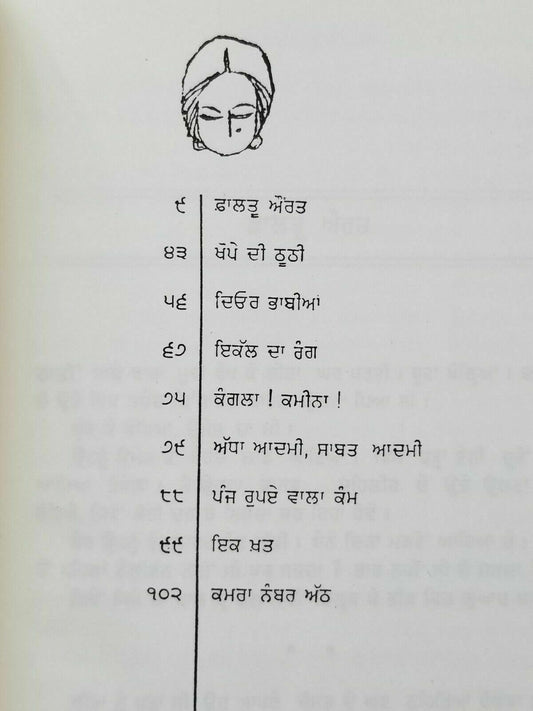 ੯ ਫ਼ਾਲਤੂ ਔਰਤ
੪੩ ਖੋਪੇ ਦੀ ਠੂਠੀ
੫੬ ਦਿਓਰ ਭਾਬੀਆਂ
੬੭ ਇਕੱਲ ਦਾ ਰੰਗ
੭੫ ਕੰਗਲਾ ! ਕਮੀਨਾ !
੭੯ ਅੱਧਾ ਆਦਮੀ, ਸਾਬਤ ਆਦਮੀ
੮੮ ਪੰਜ ਰੁਪਏ ਵਾਲਾ ਕੰਮ
੯੯ ਇਕ ਖ਼ਤ
੧੦੨ ਕਮਰਾ ਨੰਬਰ ਅੱਠ